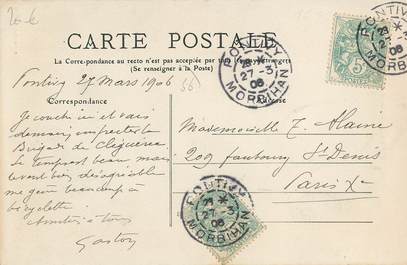 20 €
CARTE POSTALE
La Correspondance au recto n'est pas acceptée par tous les pays étrangers
(Se renseigner à la Poste)
PONTIVY
27-3
06
MORBIHAN
PONTIVY
27-3
06
MORBIHAN
5
Pontivy 27 Mars 1906 (56)
Correspondance
Adresse
Je couche ici et vais
demain, inspecter la
Brigade de Cléguérec
Le temps est beau mais
vent bien désagréable
me gêne beaucoup à
bicyclette.
Amitiés à tous
Gaston
Mademoiselle T. Alaine
209 faubourg St Denis
Paris Xe
PONTIVY
27-3
06
MORBIHAN